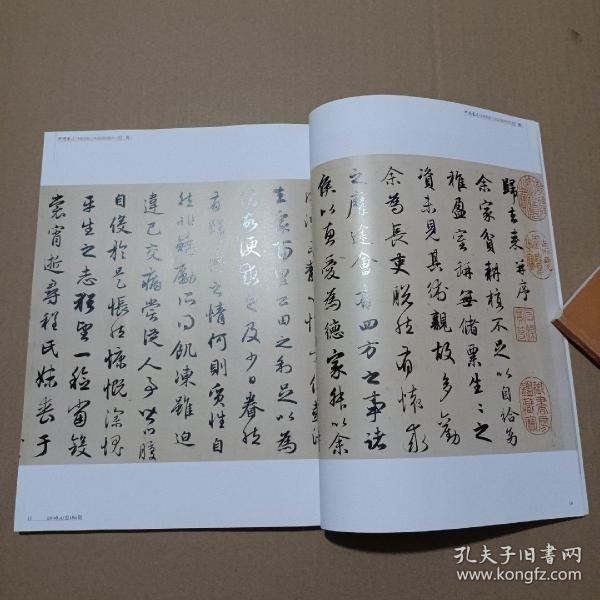 歸去来并序
余家貧耕植不足以自給幼
稚盈室缾無儲粟生〻之
資未見其術親故多勸
余為長吏脱然有懷求
之靡途會有四方之事諸
侯以惠愛為德家叔以余
去家百里公田之利足以為
酒故便求之及少日眷然
有歸歟之情何則質性自
然非矯勵所得飢凍雖迫
違己交病嘗從人事皆口腹
自役於是悵然慷慨深愧
平生之志猶望一稔當斂
裳宵逝尋程氏妹喪于
孔夫子旧书网
www.kongfz.com